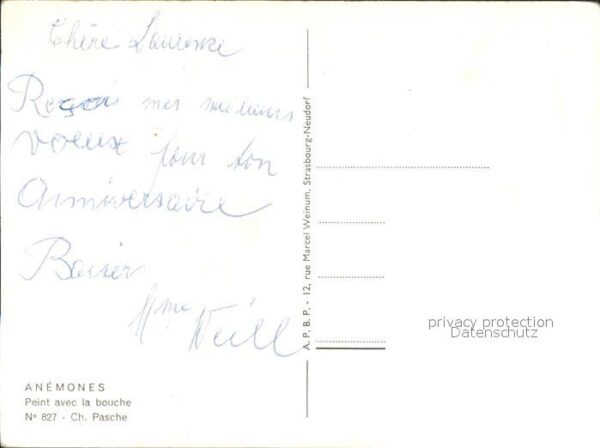 Chère Laurence
Reçois mes meilleurs
voeux pour ton
Anniversaire
Baisers
Mme Weill
ANÉMONES
Peint avec la bouche
No 827 - Ch. Pasche
A. P. B. P. - 12, rue Marcel Weinum, Strasbourg-Neudorf
privacy protection
Datenschutz